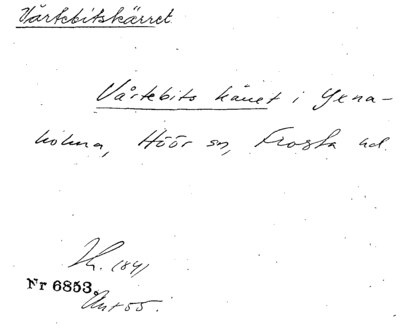 Vårtebitskärret
Vårtebits kärret i Yxna-
holma, Höör sn, Frosta hd.
1841
Nr 6853.